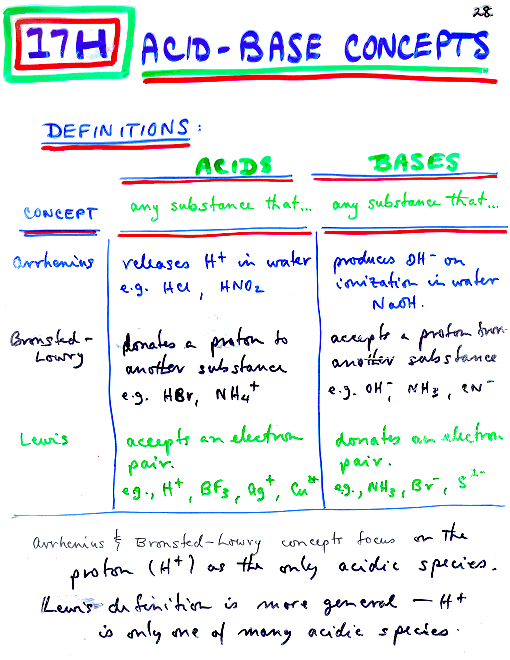 28
17H ACID-BASE CONCEPTS
DEFINITIONS:
ACIDS BASES
CONCEPT any substance that... any substance that...
Arrhenius releases H⁺ in water produces OH⁻ on
e.g. HCl, HNO₂ ionization in water
NaOH.
Bronsted- donates a proton to accepts a proton from
Lowry another substance another substance
e.g. HBr, NH₄⁺ e.g. OH⁻, NH₃, CN⁻
Lewis accepts an electron donates an electron
pair. pair.
e.g., H⁺, BF₃, Ag⁺, Cu²⁺ e.g., NH₃, Br⁻, S²⁻
Arrhenius & Bronsted-Lowry concepts focus on the
proton (H⁺) as the only acidic species.
Lewis definition is more general — H⁺
is only one of many acidic species.